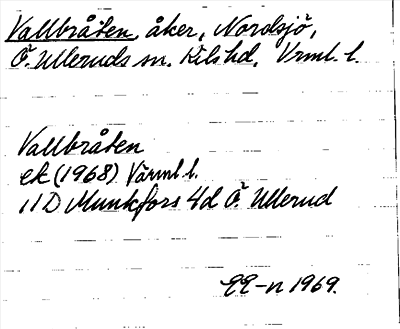 Vallbråten, åker, Nordsjö,
Ö. Ulleruds sn. Kils hd. Vrml. l.
Vallbråten
ek (1968) Värml l.
11D Munkfors 4d Ö Ullerud
1969.